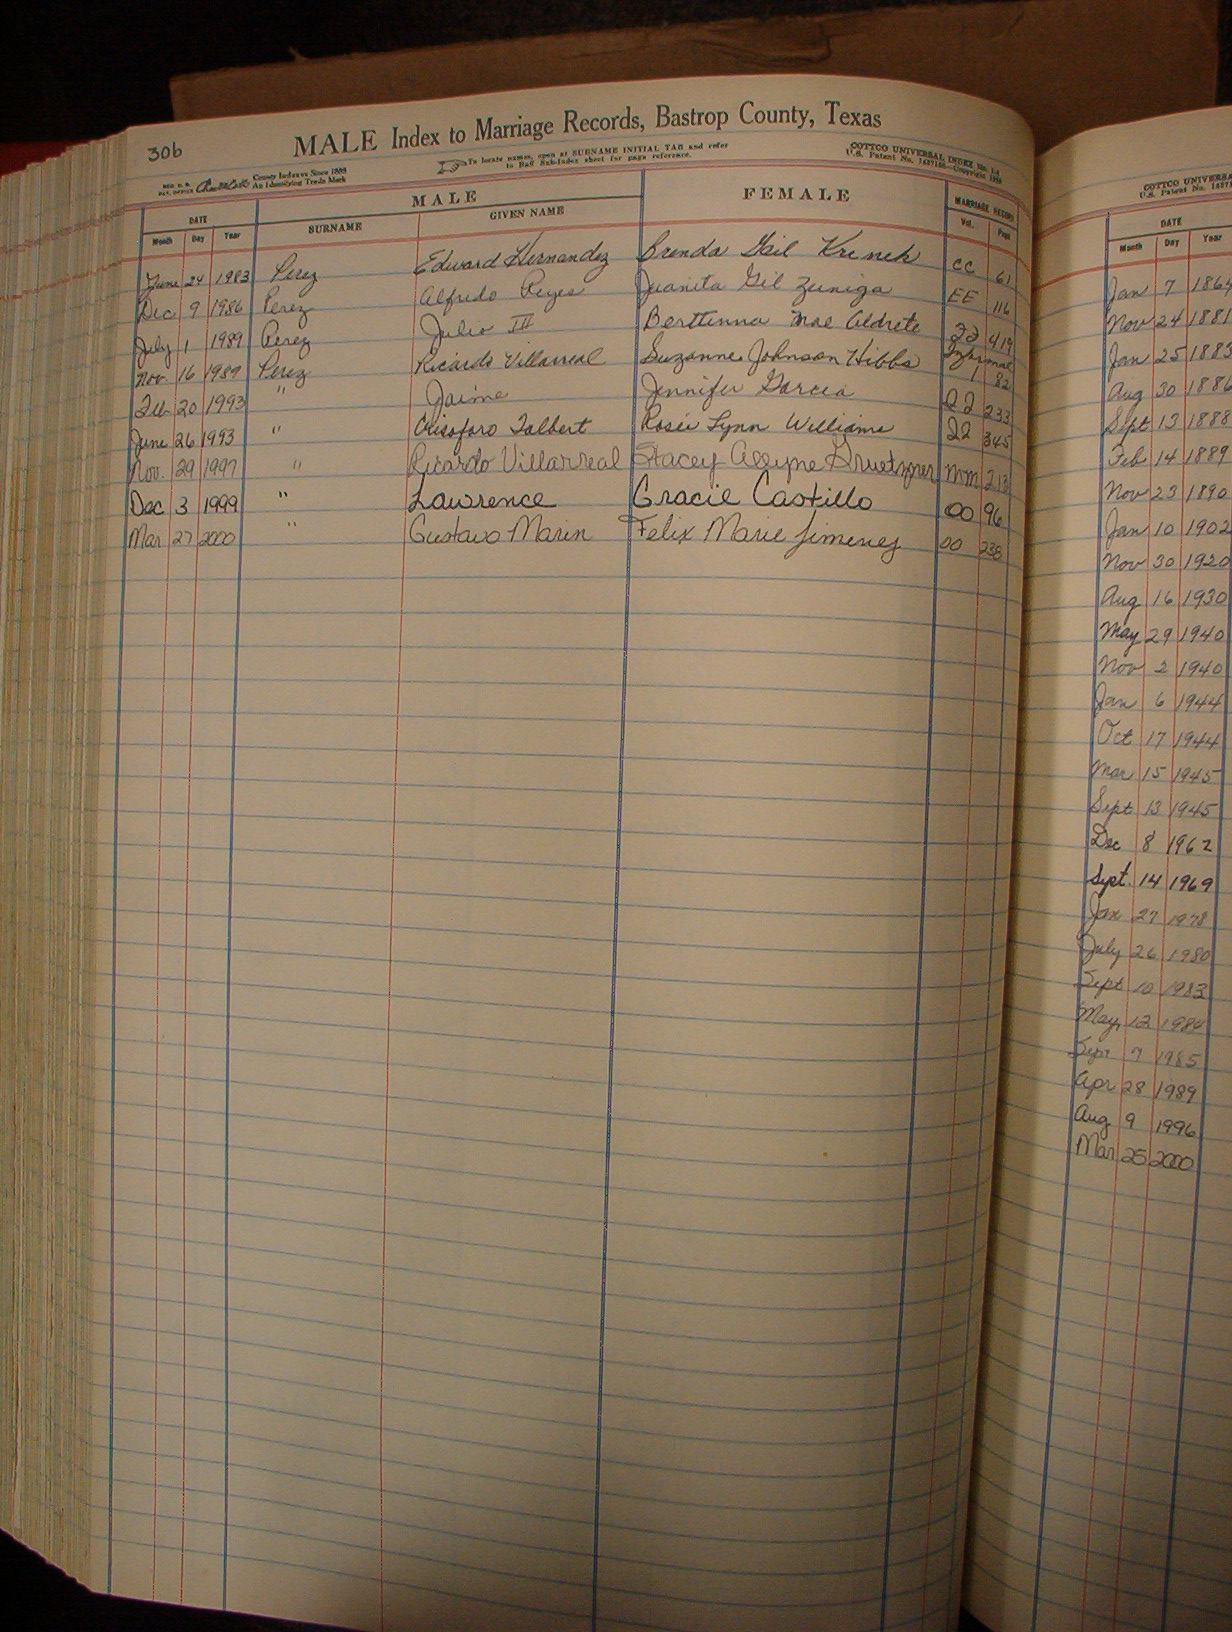 306
MALE Index to Marriage Records, Bastrop County, Texas
To locate names, open at SURNAME INITIAL TAB and refer
to Buff Sub-Index sheet for page reference.
COTTCO UNIVERSAL INDEX
U.S. Patent No.
County Indexes Since 1888
An Identifying Trade Mark
MALE FEMALE MARRIAGE RECORD
DATE SURNAME GIVEN NAME Vol. Page
Month Day Year
June 24 1983 Perez Edward Hernandez Brenda Gail Krenek CC 61
Dec 9 1986 Perez Alfredo Reyes Juanita Gil Zuniga EE 116
July 1 1989 Perez Julio III Berttinna Mae Aldrete 419
Nov. 16 1989 Perez Ricardo Villarreal Suzanne Johnson Hibbs Informal 1 82
Feb 20 1993 " Jaime Jennifer Garcia 233
June 26 1993 " Crisoforo Talbert Rosei Lynn Williams 345
Nov. 29 1997 " Ricardo Villarreal Stacey Allyne Gruetzner MM 213
Dec 3 1999 " Lawrence Gracie Castillo OO 96
Mar 27 2000 " Gustavo Marin Felix Marie Jimenez OO 238
COTTCO UNIVERSA
U.S. Patent No.
DATE
Month Day Year
Jan 7 1864
Nov 24 1881
Jan 25 1883
Aug 30 1886
Sept 13 1888
Feb 14 1889
Nov 23 1890
Jan 10 1902
Nov 30 1920
Aug 16 1930
May 29 1940
Nov 2 1940
Jan 6 1944
Oct 17 1944
Mar 15 1945
Sept 13 1945
Dec 8 1962
Sept. 14 1969
Jan 27 1978
July 26 1980
Sept 10 1983
May 12 1984
Sept 7 1985
Apr 28 1989
Aug 9 1996
Mar 25 2000